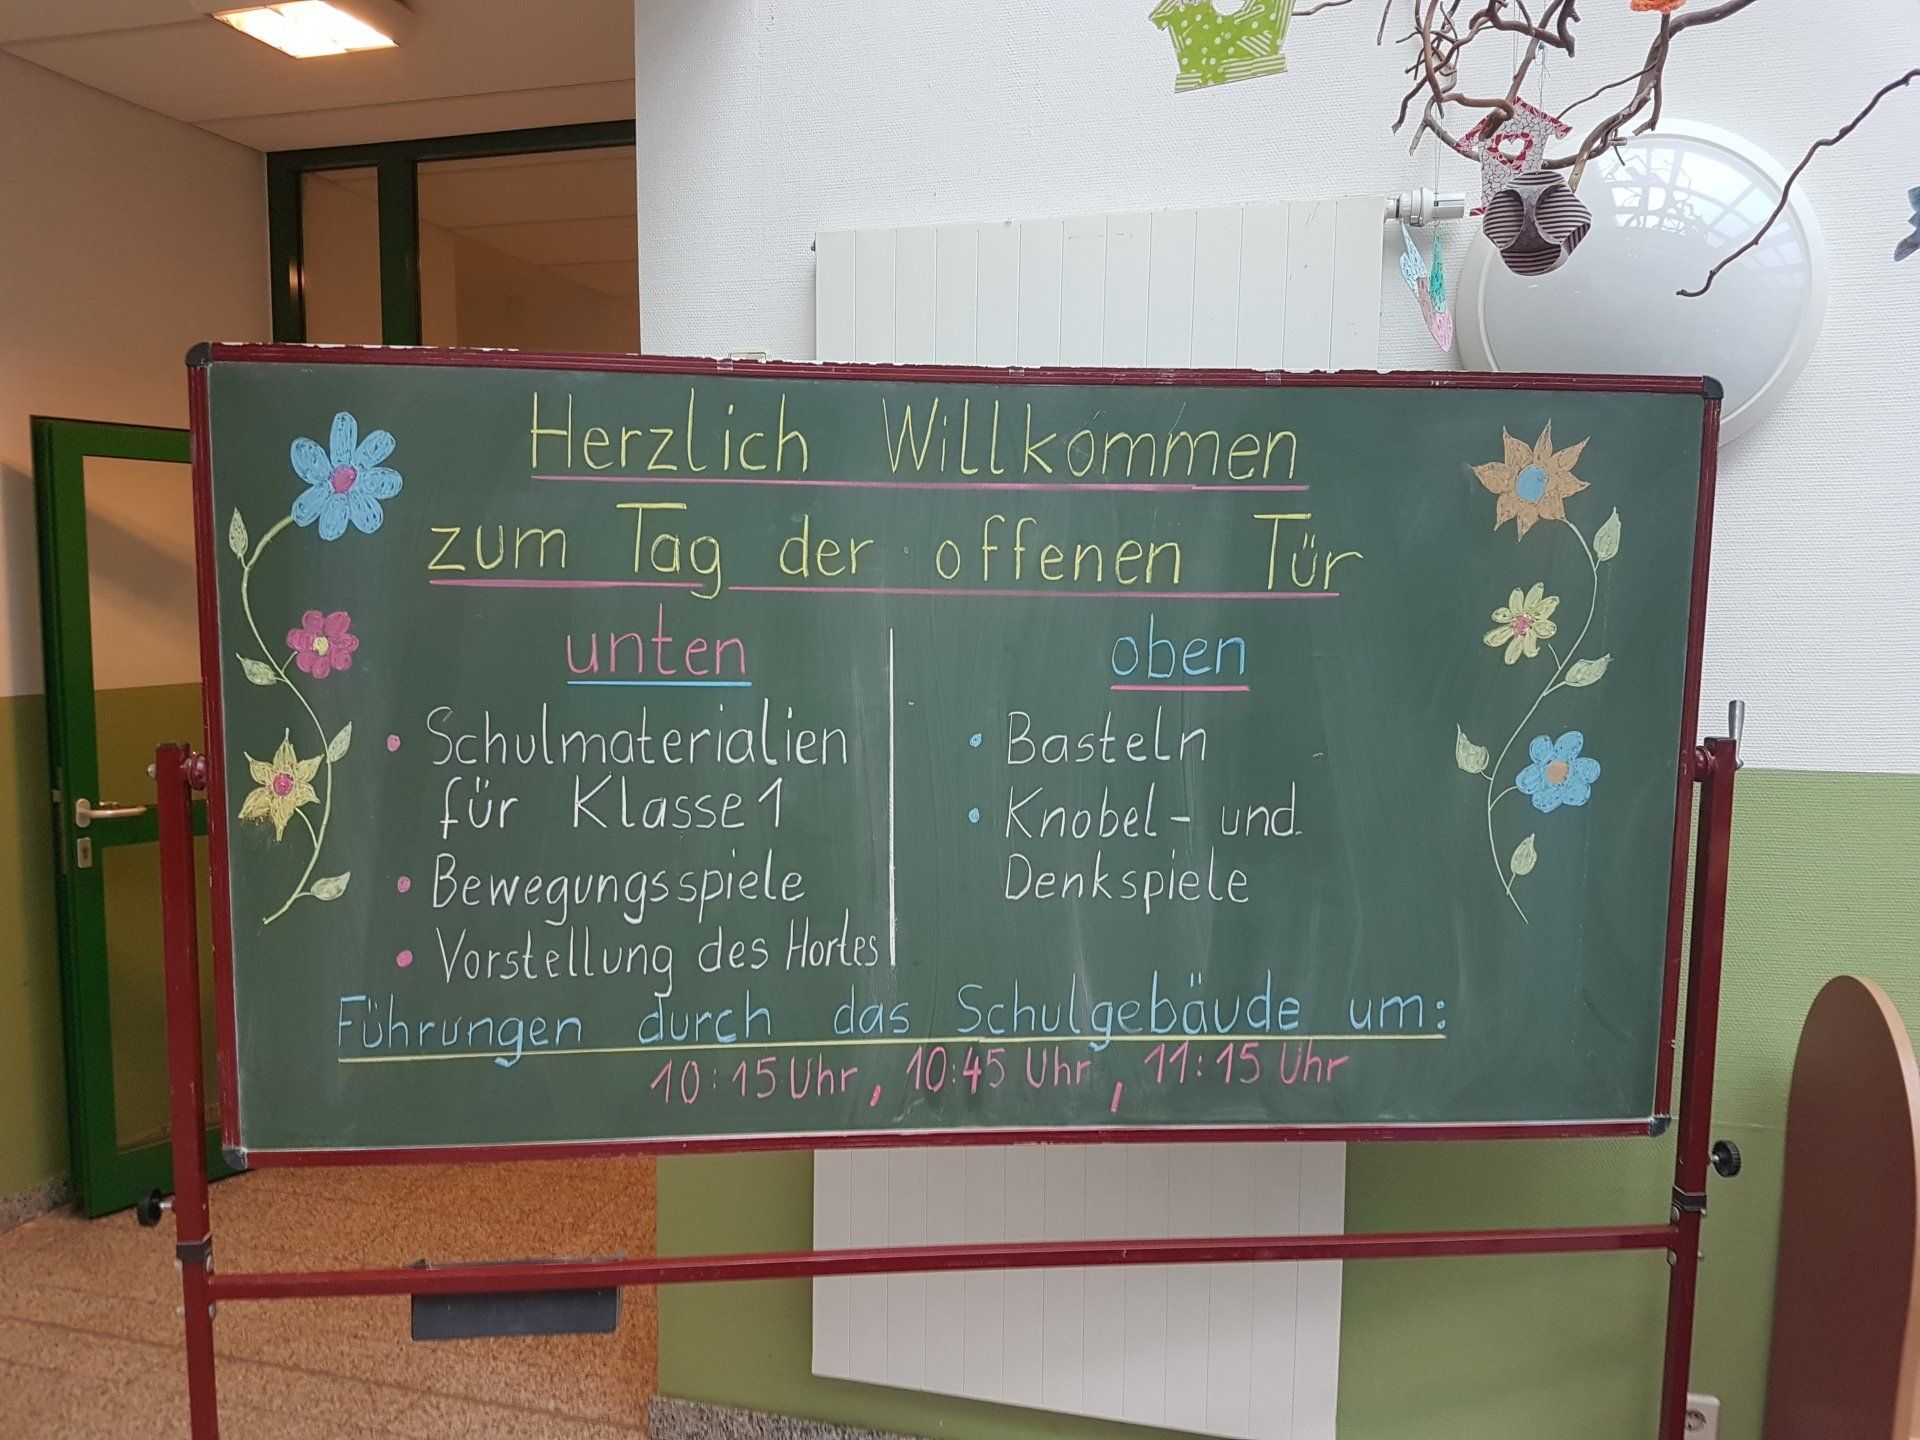 Herzlich Willkommen
zum Tag der offenen Tür
unten
• Schulmaterialien
für Klasse 1
• Bewegungsspiele
• Vorstellung des Hortes
oben
• Basteln
• Knobel- und
Denkspiele
Führungen durch das Schulgebäude um:
10:15 Uhr, 10:45 Uhr, 11:15 Uhr